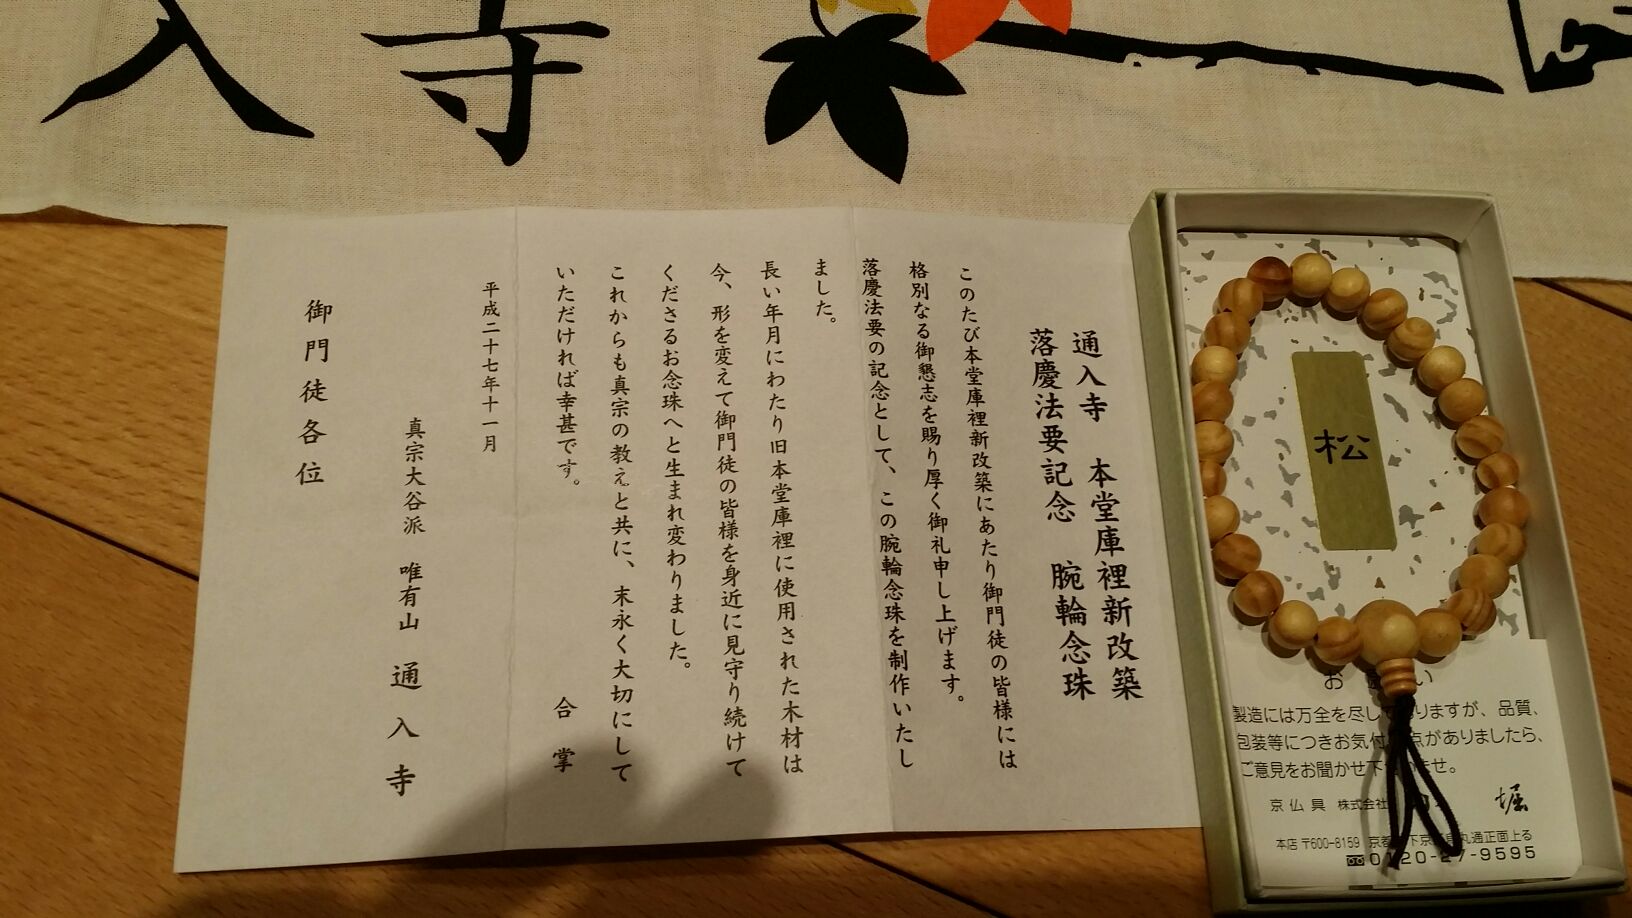 入寺
通入寺 本堂庫裡新改築
落慶法要記念 腕輪念珠
このたび本堂庫裡新改築にあたり御門徒の皆様には
格別なる御懇志を賜り厚く御礼申し上げます。
落慶法要の記念として、この腕輪念珠を制作いたし
ました。
長い年月にわたり旧本堂庫裡に使用された木材は
今、形を変えて御門徒の皆様を身近に見守り続けて
くださるお念珠へと生まれ変わりました。
これからも真宗の教えと共に、末永く大切にして
いただければ幸甚です。
合掌
平成二十七年十一月
真宗大谷派 唯有山 通入寺
御門徒各位
松
お い
製造には万全を尽して りますが、品質、
包装等につきお気付 点がありましたら、
ご意見をお聞かせ下 ませ。
京仏具 株式会社 堀
本店 〒600-8159 京都 下京 丸通正面上る
0120-27-9595